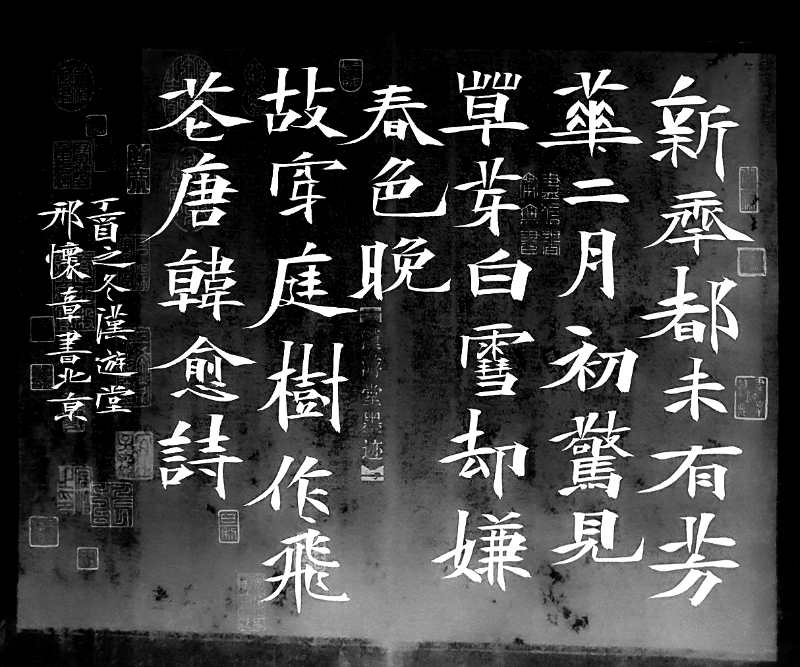 新年都未有芳
華二月初驚見
草芽白雪却嫌
春色晚
故穿庭樹作飛
花唐韓愈詩
丁酉之冬漢遊堂
邢懷章書北京
游堂墨迹